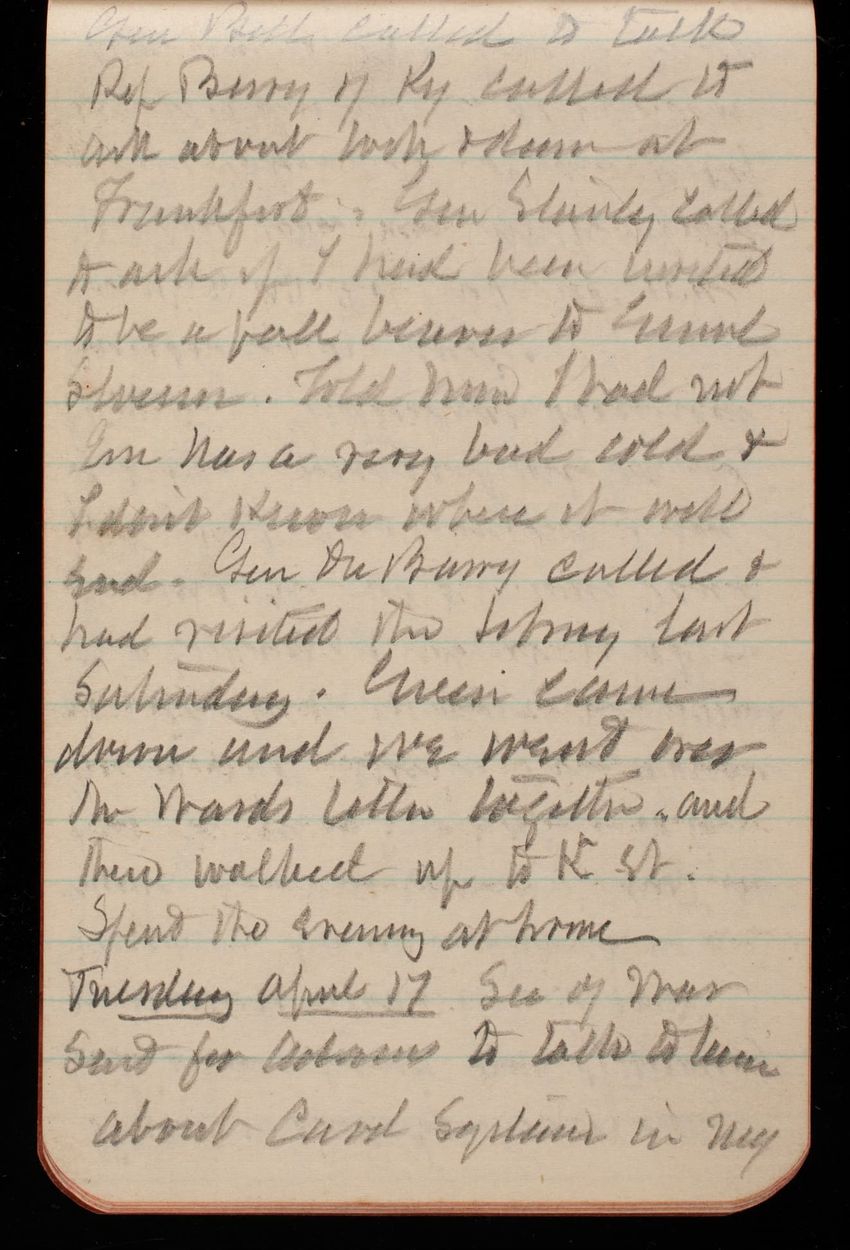 Gen Bell called to talk
Rep Berry of Ky called to
ask about lock & dam at
Frankfort. Gen Stanley called
to ask if I had been invited
to be a pall bearer to Genrl
Slocum. Told him I had not
Em has a very bad cold &
I don't know where it will
end. Gen Du Barry called &
had visited the Library last
Saturday. Green came
down and we went over
the Wards letter together. and
then walked up to K St.
Spent the evening at home
Tuesday April 17 Sec of War
Sent for to talk to him
about Card System in my